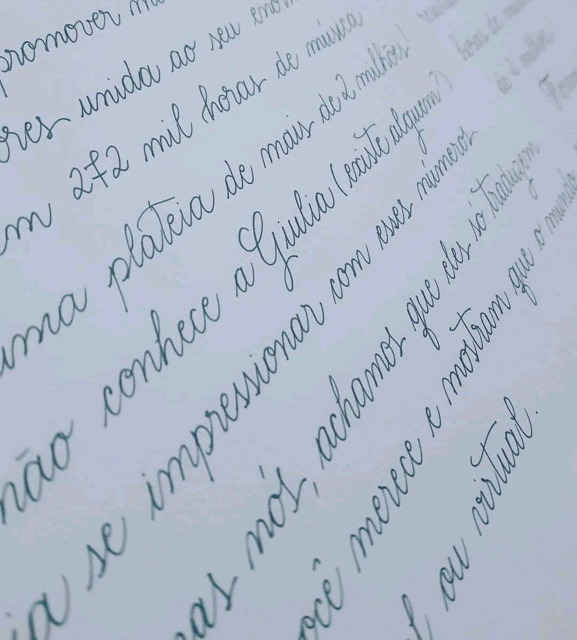 promover
ores unida ao seu
m 272 mil horas de música
uma plateia de mais de 2 milhões!
não conhece a Giulia (existe alguém?)
ia se impressionar com esses números
as nós, achamos que eles só traduzem
ocê merece e mostram que o mundo
l ou virtual.